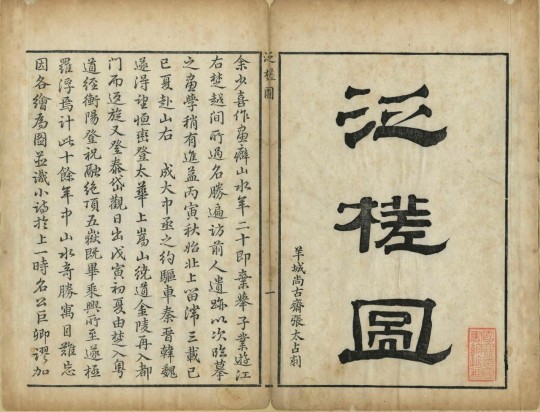 泛槎圖
羊城尚古齋張太占刻
泛槎圖
一
余少喜作畫癖山水年二十即棄舉子業遊江
右楚越間所過名勝遍訪前人遺跡以次臨摹
之畫學稍有進益丙寅秋始北上留滯三載己
巳夏赴山右 成大中丞之約驅車秦晉韓魏
遂得望恒嶽登太華上嵩山繞道金陵再入都
門而迴旋又登泰岱觀日出戊寅初夏由楚入粵
道經衡陽登祝融絶頂五嶽既畢乘興所至遂極
羅浮焉計此十餘年中山水奇勝寓目難忘
因各繪為圖並識小詩於上一時名公巨卿謬加